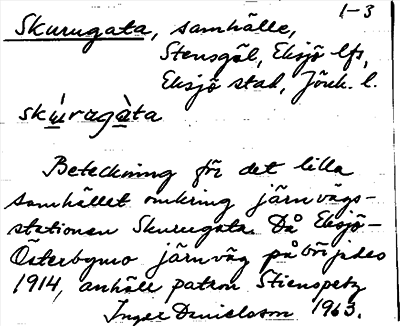 1-3
Skurugata, samhälle,
Stensgöl, Eksjö lfs,
Eksjö stad, Jönk. l.
skúragàta
Beteckning för det lilla
samhället omkring järnvägs-
stationen Skurugata. Då Eksjö-
Österbymo järnväg påbörjades
1914, anhöll patron Stienspetz
Inger Danielsson 1963.